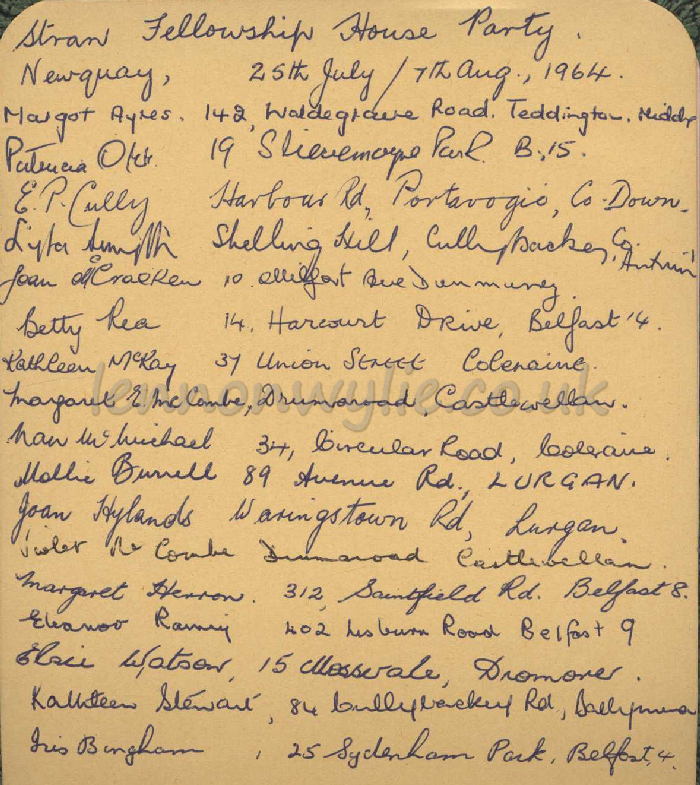 Stran Fellowship House Party.
Newquay, 25th July / 7th Aug., 1964.
Margot Ayres. 142, Waldegrave Road. Teddington. Middx
Patricia 19 Park. B.15.
E.P. Cully Harbour Rd, Portavogie, Co. Down.
Shelling Hill, Cullybackey, Co. Antrim
Joan McCracken 10 Milfort Ave Dunmurry
Betty Rea 14, Harcourt Drive, Belfast 14.
Kathleen McKay 37 Union Street Coleraine.
Margaret E. McCombe, Drumaroad, Castlewellan.
Nan McMichael 34, Circular Road, Coleraine.
Mollie Burrell 89 Avenue Rd., LURGAN.
Joan Hylands Waringstown Rd, Lurgan.
Violet McCombe Drumaroad Castlewellan.
Margaret Herron. 312, Saintfield Rd. Belfast 8.
Eleanor 402 Lisburn Road Belfast 9
Elsie Watson, 15 Mossvale, Dromore.
Kathleen Stewart, 84 Cullybackey Rd, Ballymena
Iris Bingham, 25 Sydenham Park, Belfast, 4.
lennonwylie.co.uk